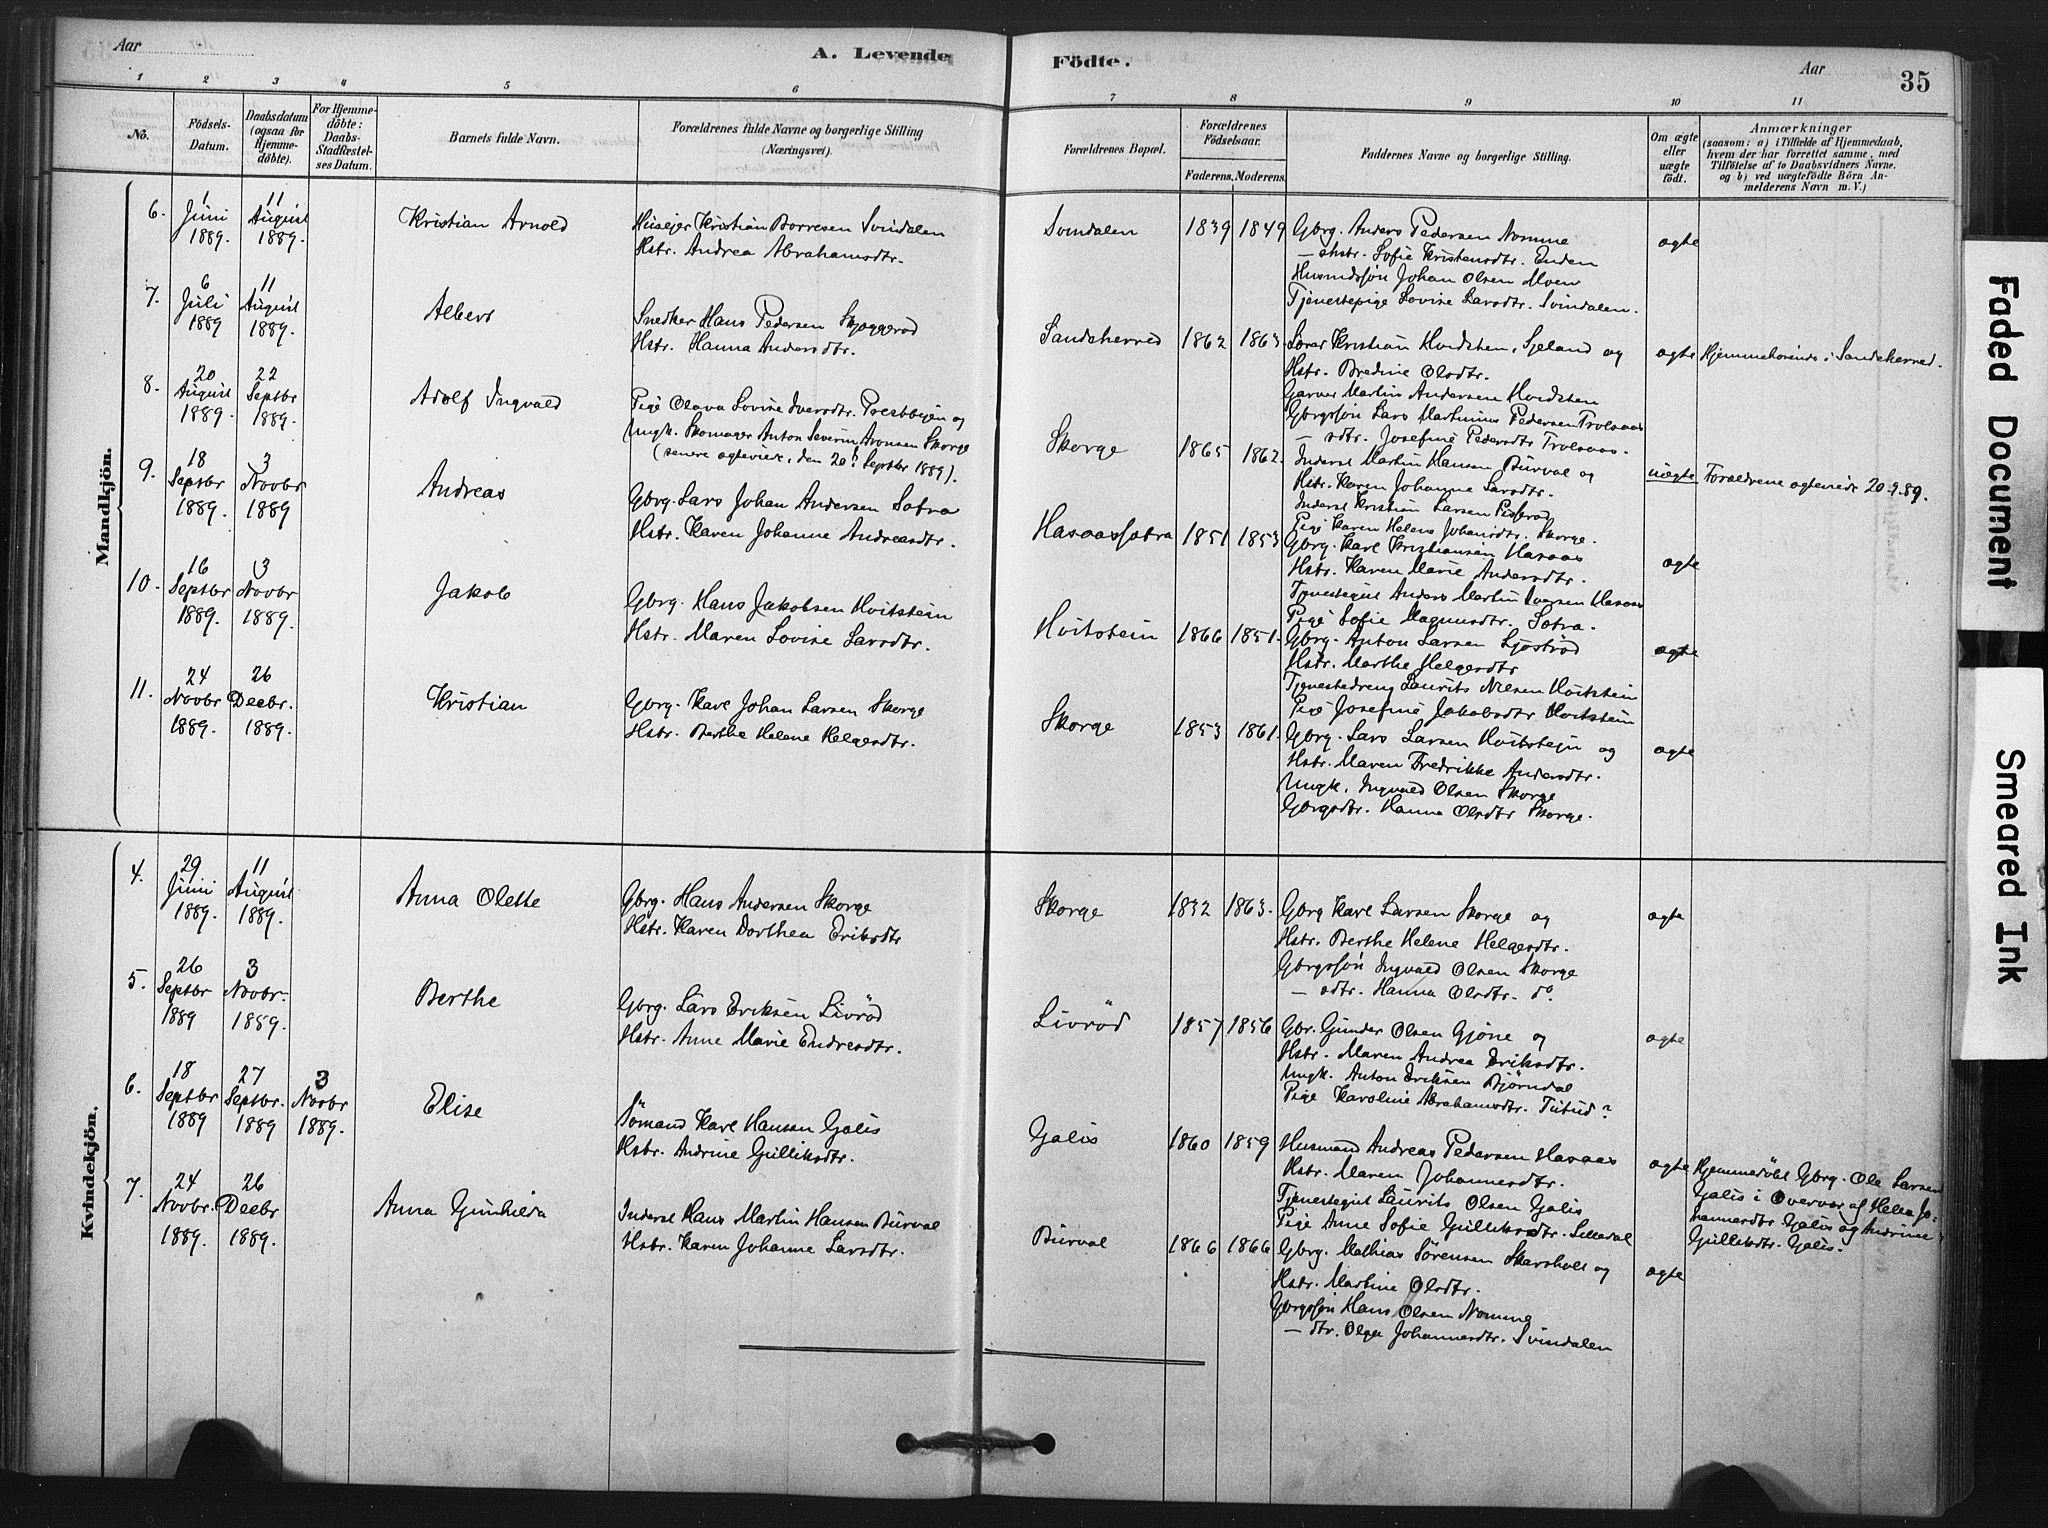 Aar
A. Levende Födte.
Aar
35
1 2 3 4 5 6 7 8 9 10 11
No.
Födsels-Datum.
Daabsdatum (ogsaa for Hjemmedöbte).
For Hjemmedöbte: Daabs-Stadfæstelses Datum.
Barnets fulde Navn.
Forældrenes fulde Navne og borgerlige Stilling (Næringsvei).
Forældrenes Bopæl.
Forældrenes Födselsaar.
Faderens. Moderens.
Faddernes Navne og borgerlige Stilling.
Om ægte eller uægte födt.
Anmærkninger
(saasom: a) i Tilfælde af Hjemmedaab,
hvem der har forrettet samme, med
Tilföielse af to Daabsvidners Navne.
og b) ved uægtefödte Börn Anmelderens Navn m. V.)
Mandkjön.
6. 1 Juni 1889. 11 August 1889. Kristian Arnold
Husejer Kristian Borresen Svindalen
Hstr. Andrea Abrahamsdtr.
Svindalen 1839 1849
Gbrg. Anders Pedersen Nomme
— ehstr. Sofie Kristensdtr. Enden
Husmdssøn Johan Olsen Moen
Tjenestepige Lovise Larsdtr. Svindalen.
ægte
7. 6 Juli 1889 11 August 1889. Albert
Snedker Hans Pedersen Skjoggerød
Hstr. Hanna Andersdtr.
Sandeherred 1862 1863
Lærer Kristian Hvidsten, Sjeland og
Hstr. Bredine Olsdtr.
Garver Martin Andersen Hvidsten
Gbrgsøn Lars Martinius Pedersen Trolsaas
— sdtr. Josefine Pedersdtr Trolsaas.
ægte Hjemmehørende i Sandeherred.
8. 20 August 1889. 22 Septbr 1889. Adolf Ingvald
Pige Olava Lovise Iversdtr. Prestbyen og
Ungk. Skomager Anton Severin Aronsen Skorge
(senere ægteviet, den 20. Septbr 1889).
Skorge 1865 1862.
Inderst Martin Hansen Burval og
Hstr. Karen Johanne Larsdtr.
Inderst Kristian Larsen Pisserød
Pige Karen Helene Johansdtr. Skorge.
uægte Forældrene ægteviede 20.9.89.
9. 18 Septbr 1889. 3 Novbr 1889 Andreas
Gbrg. Lars Johan Andersen Sætra
Hstr. Karen Johanne Andreasdtr.
Hasaassætra 1851 1853
Gbrg. Karl Kristiansen Hasaas
Hstr. Karen Marie Andersdtr.
Tjenestegut Anders Martin Iversen Hasaas
Pige Sofie Magnusdtr. Sætra.
ægte
10. 16 Septbr 1889. 3 Novbr 1889. Jakob
Gbrg. Hans Jakobsen Hvitstein
Hstr. Maren Lovise Larsdtr.
Hvitstein 1866 1851.
Gbrg. Anton Larsen Sjøstrød
Hstr. Marthe Helgesdtr
Tjenestedreng Laurits Nilsen Hvitstein
Pige Josefine Jakobsdtr Hvitstein
ægte
11. 24 Novbr 1889. 26 Decbr. 1889. Kristian
Gbrg. Karl Johan Larsen Skorge
Hstr. Berthe Helene Helgesdtr.
Skorge 1853 1861.
Gbrg. Lars Larsen Hvitstein og
Hstr. Maren Fredrikke Andersdtr.
Ungk. Ingvald Olsen Skorge
Gbrgsdtr. Hanna Olsdtr Skorge.
ægte
Kvindekjön.
4. 29 Juni 1889. 11 August 1889. Anna Olette
Gbrg. Hans Andersen Skorge
Hstr. Karen Dorthea Eriksdtr
Skorge 1832 1863.
Gbrg Karl Larsen Skorge og
Hstr. Berthe Helene Helgesdtr.
Gbrgssøn Ingvald Olsen Skorge
— sdtr. Hanna Olsdtr. do.
ægte
5. 26 Septbr 1889 3 Novbr. 1889. Berthe
Gbrg. Lars Eriksen Livrød
Hstr. Anne Marie Endresdtr.
Livrød 1857 1856
Gbr. Gunder Olsen Gjøne og
Hstr. Maren Andrea Eriksdtr.
Ungk. Anton Eriksen Bjørndal
Pige Karoline Abrahamsdtr. Tutud?
ægte
6. 18 Septbr 1889 27 Septbr. 1889 3 Novbr 1889. Elise
Sømand Karl Hansen Galis
Hstr. Andrine Gulliksdtr.
Galis 1860 1859
Husmand Andreas Pedersen Hasaas
Hstr. Maren Johannesdtr.
Tjenestegut Laurits Olsen Galis
Pige Anne Sofie Gulliksdtr.
ægte Hjemmedöbt Gbrg. Ole Larsen
Galis i Overvær af Helia Johannesdtr
Galis og Andrine
Gulliksdtr. Galis.
7. 24 Novbr. 1889. 26 Decbr 1889. Anna Gunhilda
Inderst Hans Martin Hansen Burval
Hstr. Karen Johanne Larsdtr.
Burval 1866 1866
Gbrg. Mathias Sørensen Skarsholt og
Hstr. Martine Olsdtr.
Gbrgssøn Hans Olsen Nomme
— dtr. Olga Johannesdtr. Svindalen
ægte
Faded Document
Smeared Ink